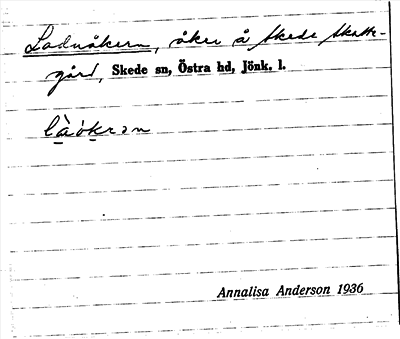 Ladnåkern, åker å Skede skatte-
gård, Skede sn, Östra hd, Jönk. l.
là̱óḵrən
Annalisa Anderson 1936